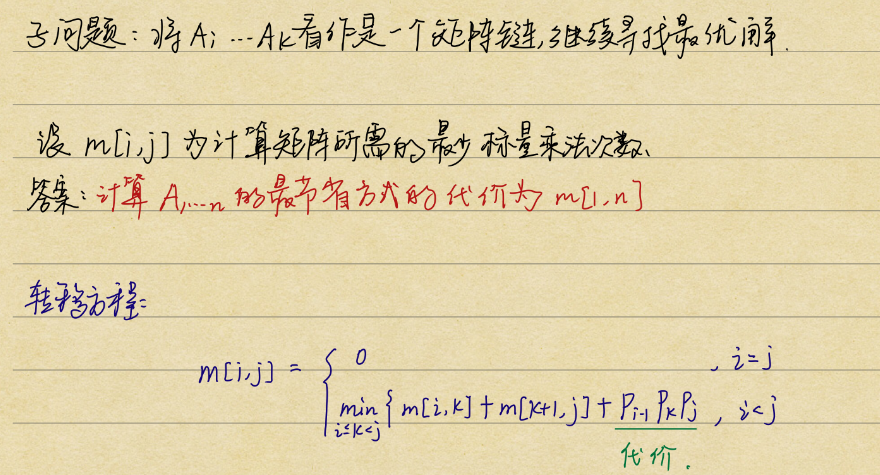 子问题：将Ai…Ak看作是一个矩阵链,继续寻找最优解.
设 m[i,j]为计算矩阵所需的最少标量乘法次数、
答案：计算 A₁…n 的最节省方式的代价为 m[1,n]
转移方程：
m[i,j] = { 0 , i=j
min i≤k<j { m[i,k]+m[k+1,j]+Pi-1 Pk Pj , i<j
代价.